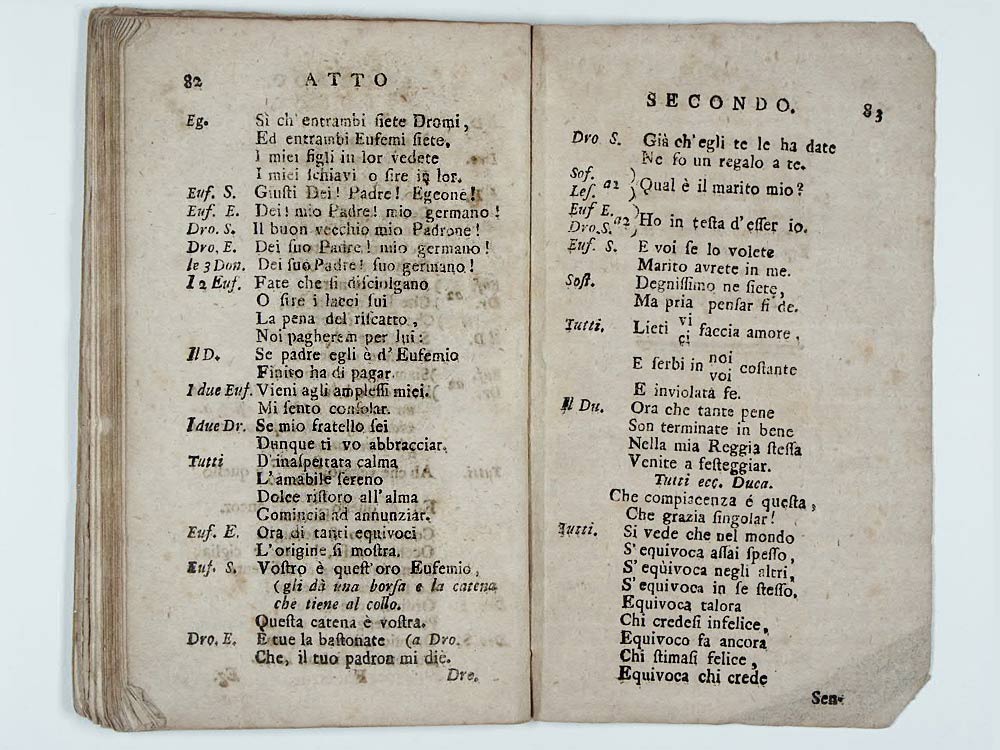 82 ATTO
Eg. Sì ch'entrambi siete Dromi,
Ed entrambi Eufemi siete.
I miei figli in lor vedete
I miei schiavi o sire in lor.
Euf. S. Giusti Dei! Padre! Egeone!
Euf. E. Dei! mio Padre! mio germano!
Dro. S. Il buon vecchio mio Padrone!
Dro. E. Dei suo Padre! mio germano!
le 3 Don. Dei suo Padre! suo germano!
I 2 Euf. Fate che si disciolgano
O sire i lacci sui
La pena del riscatto,
Noi pagherem per lui:
Il D. Se padre egli è d'Eufemio
Finito ha di pagar.
I due Euf. Vieni agli amplessi miei.
Mi sento consolar.
I due Dr. Se mio fratello sei
Dunque ti vo abbracciar.
Tutti D'inaspettata calma
L'amabile sereno
Dolce ristoro all'alma
Comincia ad annunziar.
Euf. E. Ora di tanti equivoci
L'origine si mostra.
Euf. S. Vostro è quest'oro Eufemio,
(gli dà una borsa e la catena
che tiene al collo.
Questa catena è vostra.
Dro. E. E tue la bastonate (a Dro.
Che, il tuo padron mi diè.
Dro.
SECONDO. 83
Dro S. Già ch'egli te le ha date
Ne fo un regalo a te.
Sof. Les. a2 Qual è il marito mio?
Euf E. Dro. S. a2 Ho in testa d'esser io.
Euf. S. E voi se lo volete
Marito avrete in me.
Sost. Degnissimo ne siete,
Ma pria pensar si de.
Tutti. Lieti vi ci faccia amore,
E serbi in noi voi costante
E inviolata fe.
Il Du. Ora che tante pene
Son terminate in bene
Nella mia Reggia stessa
Venite a festeggiar.
Tutti ecc. Duca.
Che compiacenza é questa,
Che grazia singolar!
Tutti. Si vede che nel mondo
S'equivoca assai spesso,
S'equivoca negli altri,
S'equivoca in se stesso.
Equivoca talora
Chi credesi infelice,
Equivoco fa ancora
Chi stimasi felice,
Equivoca chi crede
Sen-